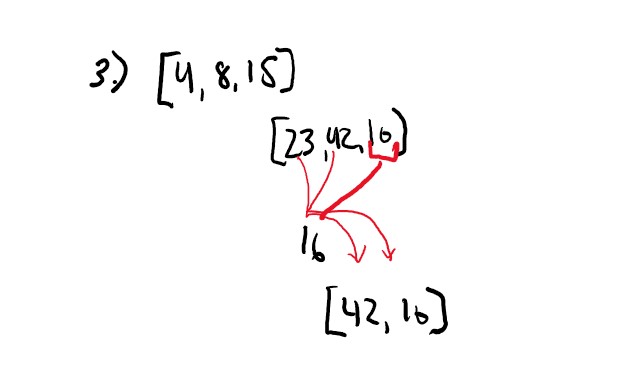 3.) [4, 8, 15]
[23, 42, 16]
16
[42, 16]